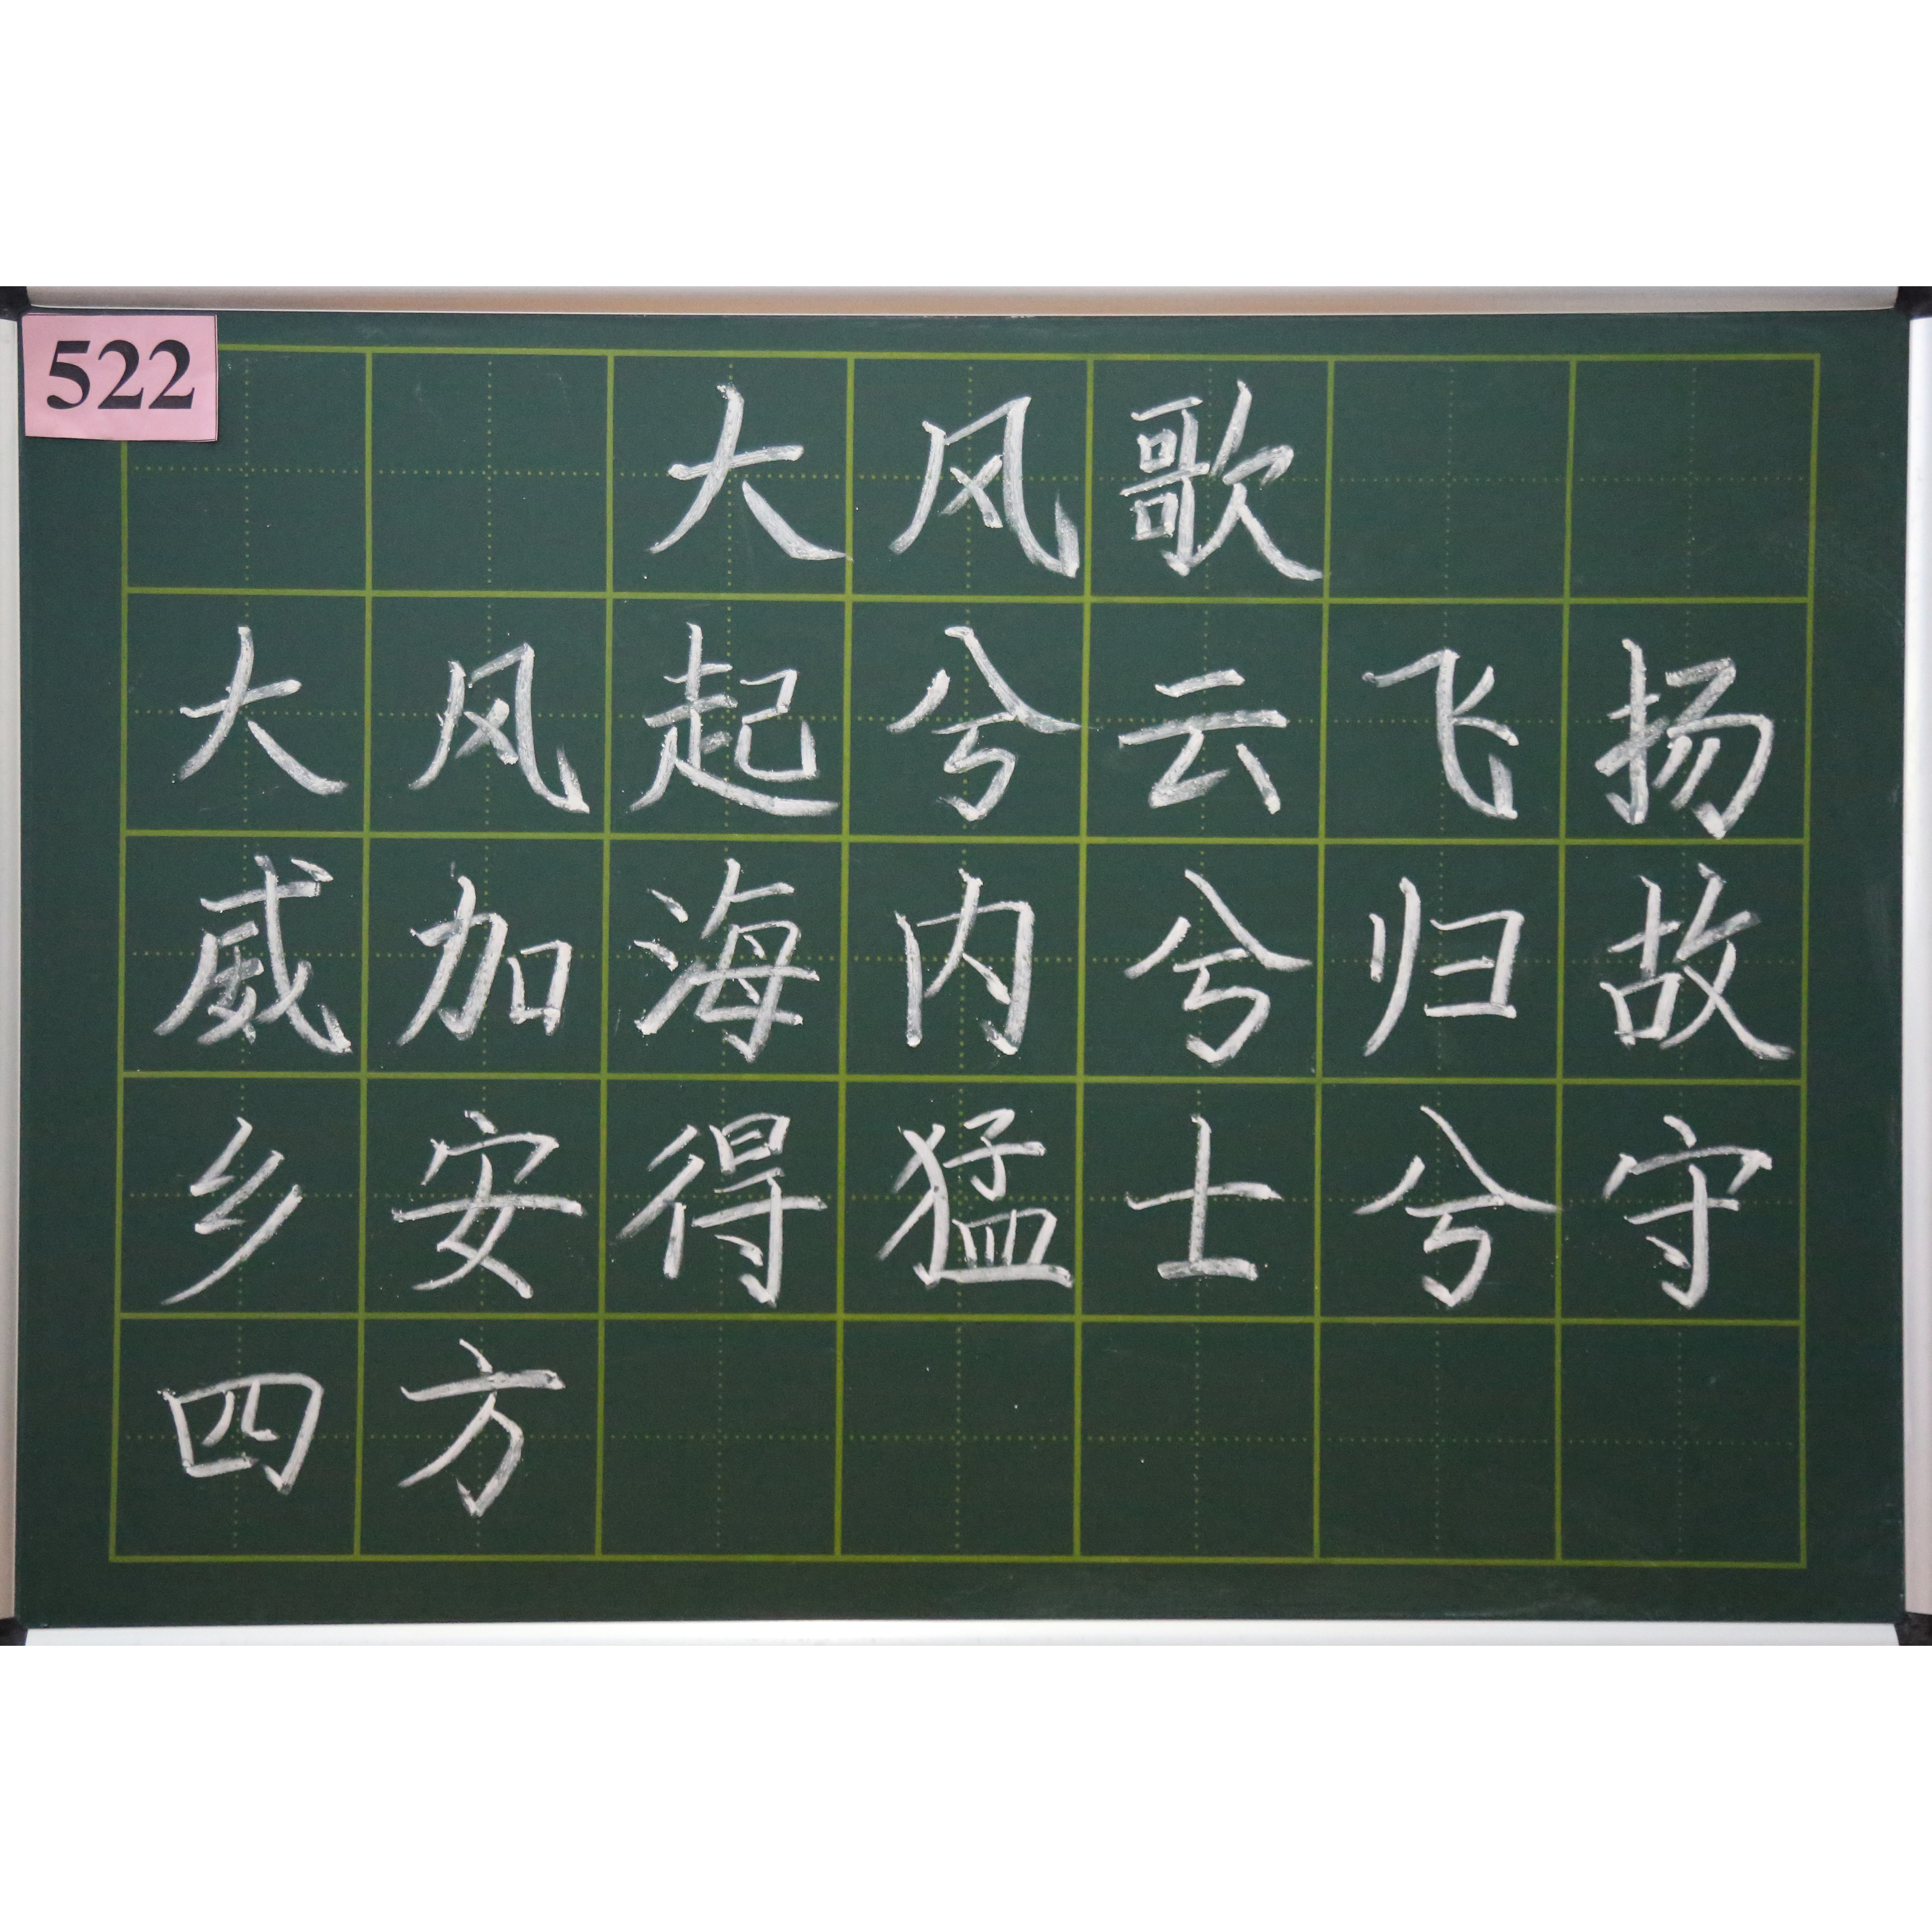 522
大风歌
大风起兮云飞扬
威加海内兮归故
乡安得猛士兮守
四方